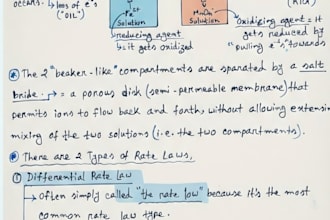 occurs. → loss of e⁻'s
("OIL")
Solution
Solution
(RIG)
→ reducing agent
↳ it gets oxidized
→ Oxidizing agent = it
gets reduced by
"pulling e⁻'s" towards
The 2 "beaker-like" compartments are sparated by a salt
bride. ↳ = a porous disk (semi-permeable membrane) that
permits ions to flow back and forth, without allowing extensiv
mixing of the two solutions (i.e. the two compartments).
There are 2 Types of Rate Laws,
① Differential Rate Law
→ Often simply called "the rate law" because it's the most
common rate law type.